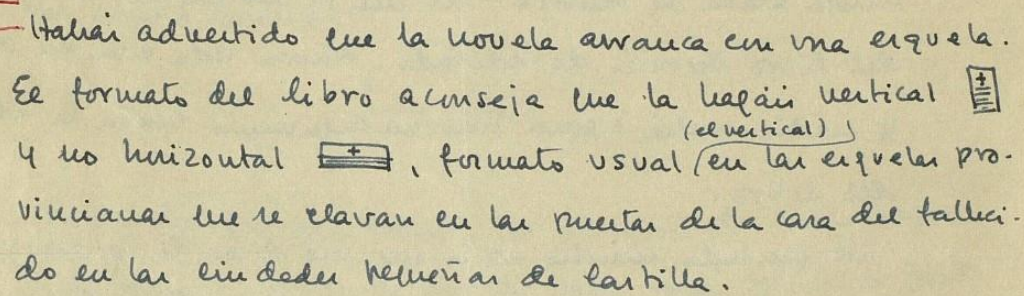 - Habráis advertido que la novela arranca con una esquela.
El formato del libro aconseja que la hagáis vertical
y no horizontal, formato usual (el vertical) en las esquelas pro-
vincianas que se clavan en las puertas de la casa del falleci-
do en las ciudades pequeñas de Castilla.